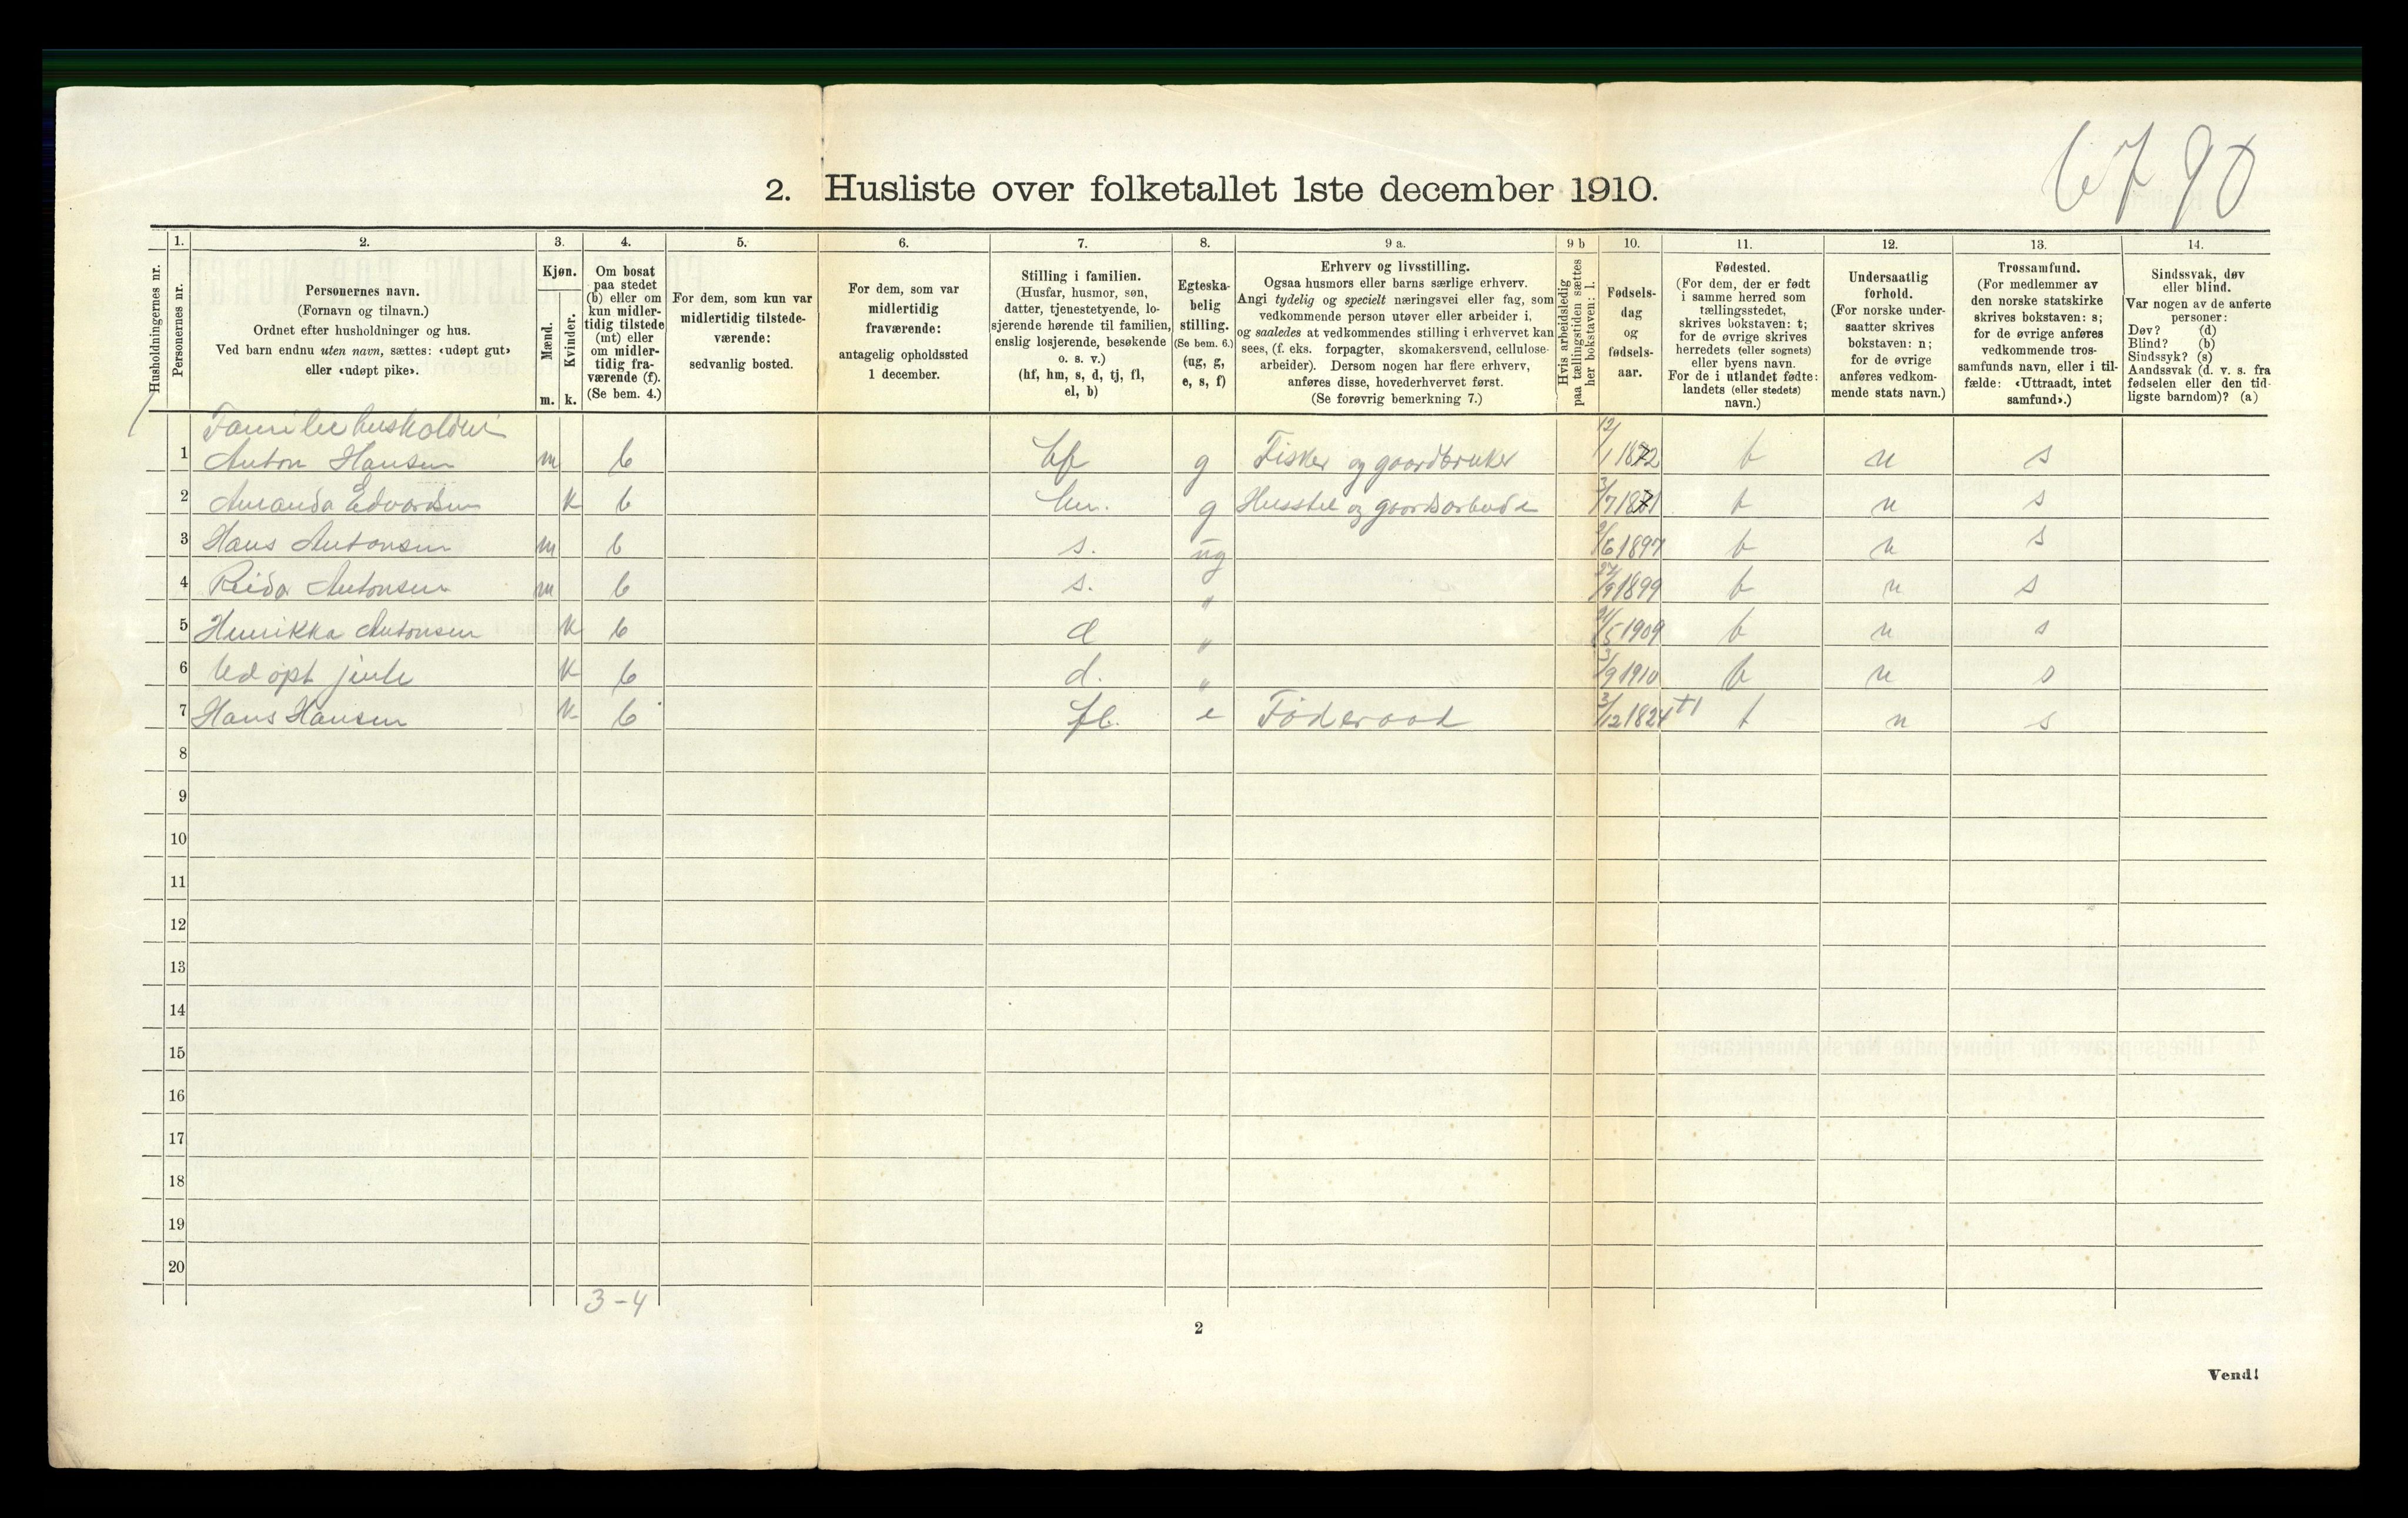 67 90
2. Husliste over folketallet 1ste december 1910.
Husholdningernes nr.
1. Personernes nr.
2. Personernes navn.
(Fornavn og tilnavn.)
Ordnet efter husholdninger og hus.
Ved barn endnu uten navn, sættes: «udøpt gut»
eller «udøpt pike».
3. Kjøn.
Mænd. m.
Kvinder. k.
4. Om bosat
paa stedet
(b) eller om
kun midler-
tidig tilstede
(mt) eller
om midler-
tidig fra-
værende (f).
(Se bem. 4.)
5. For dem, som kun var
midlertidig tilstede-
værende:
sedvanlig bosted.
6. For dem, som var
midlertidig
fraværende:
antagelig opholdssted
1 december.
7. Stilling i familien.
(Husfar, husmor, søn,
datter, tjenestetyende, lo-
sjerende hørende til familien,
enslig losjerende, besøkende
o. s. v.)
(hf, hm, s, d, tj, fl,
el, b)
8. Egteska-
belig
stilling.
(Se bem. 6.)
(ug, g,
e, s, f)
9 a. Erhverv og livsstilling.
Ogsaa husmors eller barns særlige erhverv.
Angi tydelig og specielt næringsvei eller fag, som
vedkommende person utøver eller arbeider i,
og saaledes at vedkommendes stilling i erhvervet kan
sees, (f. eks. forpagter, skomakersvend, cellulose-
arbeider). Dersom nogen har flere erhverv,
anføres disse, hovederhvervet først.
(Se forøvrig bemerkning 7.)
9 b Hvis arbeidsledig
paa tællingstiden sættes
her bokstaven: l.
10. Fødsels-
dag
og
fødsels-
aar.
11. Fødested.
(For dem, der er født
i samme herred som
tællingsstedet,
skrives bokstaven: t;
for de øvrige skrives
herredets (eller sognets)
eller byens navn.
For de i utlandet fødte:
landets (eller stedets)
navn.)
12. Undersaatlig
forhold.
(For norske under-
saatter skrives
bokstaven: n;
for de øvrige
anføres vedkom-
mende stats navn.)
13. Trossamfund.
(For medlemmer av
den norske statskirke
skrives bokstaven: s;
for de øvrige anføres
vedkommende tros-
samfunds navn, eller i til-
fælde: «Uttraadt, intet
samfund».)
14. Sindssvak, døv
eller blind.
Var nogen av de anførte
personer:
Døv? (d)
Blind? (b)
Sindssyk? (s)
Aandssvak (d. v. s. fra
fødselen eller den tid-
ligste barndom)? (a)
1 Familiehusholdni
1 Anton Hansen m b hf g Fisker og gaardbruker 12/1 1872 t n s
2 Amanda Edvardsen k b hm. g Husstel og gaardsarbeide 3/7 1871 t n s
3 Hans Antonsen m b s. ug 9/6 1897 t n s
4 Reidar Antonsen m b s. " 27/9 1899 t n s
5 Henrikka Antonsen k b d " 21/5 1909 t n s
6 Udøpt k b d. " 3/9 1910 t n s
7 Hans Hansen k b fl. e Føderaad 3/12 1824 t n s
8
9
10
11
12
13
14
15
16
17
18
19
20
3-4
2
Vend!